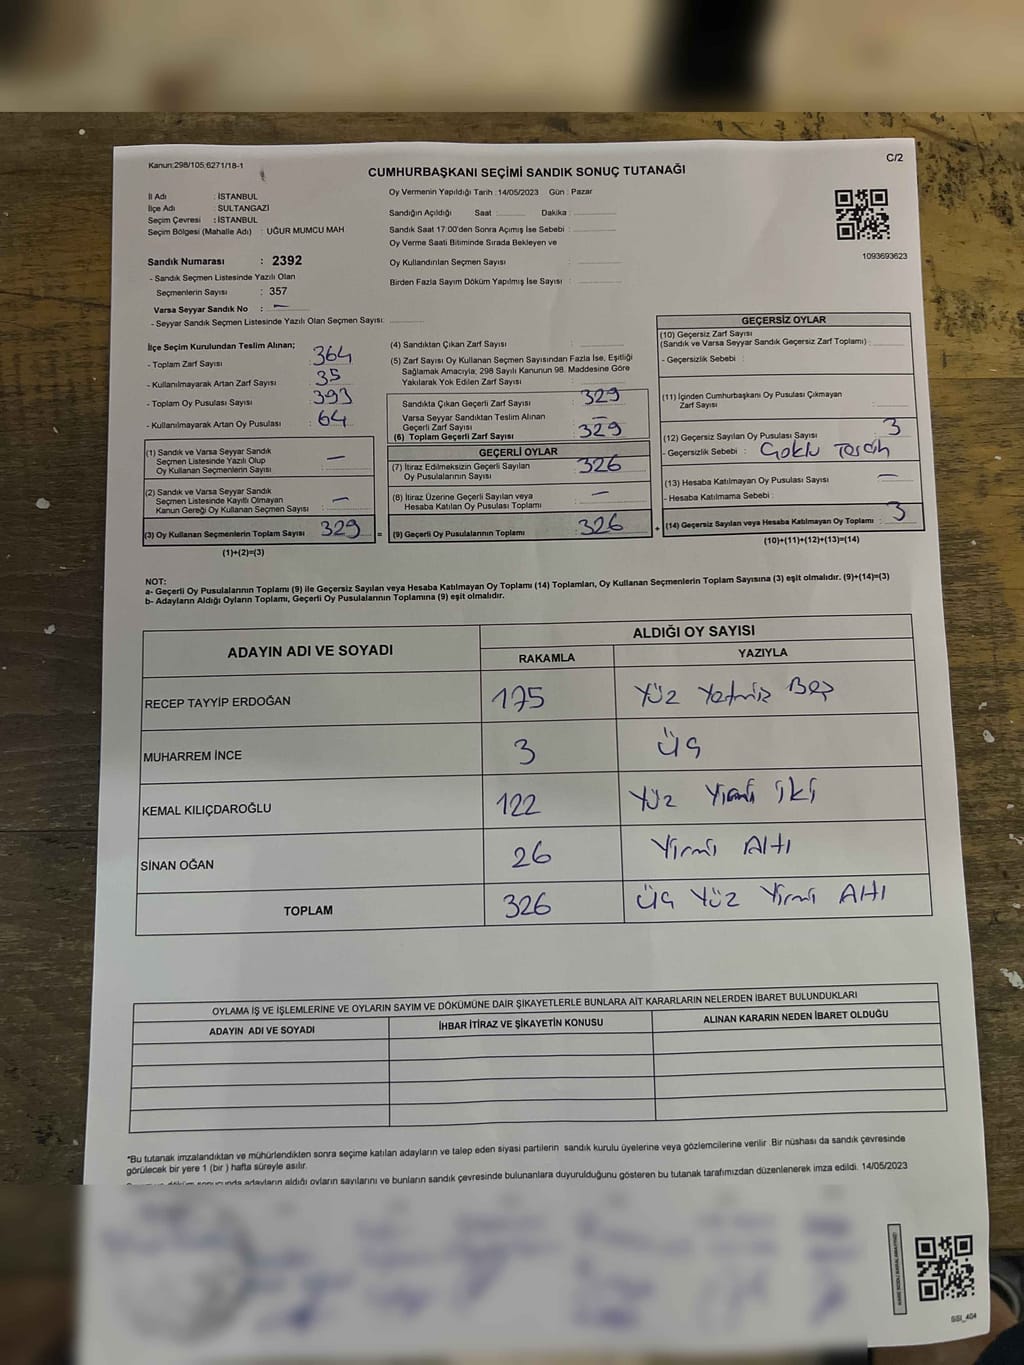 Kanun:298/105;6271/18-1
C/2
CUMHURBAŞKANI SEÇİMİ SANDIK SONUÇ TUTANAĞI
İl Adı : İSTANBUL
İlçe Adı : SULTANGAZİ
Seçim Çevresi : İSTANBUL
Seçim Bölgesi (Mahalle Adı) : UĞUR MUMCU MAH
Oy Vermenin Yapıldığı Tarih :14/05/2023 Gün : Pazar
Sandığın Açıldığı Saat : Dakika :
Sandık Saat 17:00'den Sonra Açımış İse Sebebi :
Oy Verme Saati Bitiminde Sırada Bekleyen ve
Oy Kullandırılan Seçmen Sayısı :
Birden Fazla Sayım Döküm Yapılmış İse Sayısı :
1093693623
Sandık Numarası : 2392
- Sandık Seçmen Listesinde Yazılı Olan
Seçmenlerin Sayısı : 357
Varsa Seyyar Sandık No : —
- Seyyar Sandık Seçmen Listesinde Yazılı Olan Seçmen Sayısı:
İlçe Seçim Kurulundan Teslim Alınan;
- Toplam Zarf Sayısı : 364
- Kullanılmayarak Artan Zarf Sayısı : 35
- Toplam Oy Pusulası Sayısı : 393
- Kullanılmayarak Artan Oy Pusulası : 64
(1) Sandık ve Varsa Seyyar Sandık
Seçmen Listesinde Yazılı Olup
Oy Kullanan Seçmenlerin Sayısı : —
(2) Sandık ve Varsa Seyyar Sandık
Seçmen Listesinde Kayıtlı Olmayan
Kanun Gereği Oy Kullanan Seçmen Sayısı : —
(3) Oy Kullanan Seçmenlerin Toplam Sayısı : 329
(1)+(2)=(3)
=
(4) Sandıktan Çıkan Zarf Sayısı :
(5) Zarf Sayısı Oy Kullanan Seçmen Sayısından Fazla İse, Eşitliği
Sağlamak Amacıyla; 298 Sayılı Kanunun 98. Maddesine Göre
Yakılarak Yok Edilen Zarf Sayısı :
Sandıkta Çıkan Geçerli Zarf Sayısı : 329
Varsa Seyyar Sandıktan Teslim Alınan
Geçerli Zarf Sayısı : —
(6) Toplam Geçerli Zarf Sayısı : 329
GEÇERLİ OYLAR
(7) İtiraz Edilmeksizin Geçerli Sayılan
Oy Pusulalarının Sayısı : 326
(8) İtiraz Üzerine Geçerli Sayılan veya
Hesaba Katılan Oy Pusulası Toplamı : —
(9) Geçerli Oy Pusulalarının Toplamı : 326
+
GEÇERSİZ OYLAR
(10) Geçersiz Zarf Sayısı
(Sandık ve Varsa Seyyar Sandık Geçersiz Zarf Toplamı) :
- Geçersizlik Sebebi :
(11) İçinden Cumhurbaşkanı Oy Pusulası Çıkmayan
Zarf Sayısı :
(12) Geçersiz Sayılan Oy Pusulası Sayısı : 3
- Geçersizlik Sebebi : Çoklu Tercih
(13) Hesaba Katılmayan Oy Pusulası Sayısı : —
- Hesaba Katılmama Sebebi :
(14) Geçersiz Sayılan veya Hesaba Katılmayan Oy Toplamı : 3
(10)+(11)+(12)+(13)=(14)
NOT:
a- Geçerli Oy Pusulalarının Toplamı (9) ile Geçersiz Sayılan veya Hesaba Katılmayan Oy Toplamı (14) Toplamları, Oy Kullanan Seçmenlerin Toplam Sayısına (3) eşit olmalıdır. (9)+(14)=(3)
b- Adayların Aldığı Oyların Toplamı, Geçerli Oy Pusulalarının Toplamına (9) eşit olmalıdır.
ADAYIN ADI VE SOYADI
ALDIĞI OY SAYISI
RAKAMLA YAZIYLA
RECEP TAYYİP ERDOĞAN 175 Yüz Yetmiş Beş
MUHARREM İNCE 3 Üç
KEMAL KILIÇDAROĞLU 122 Yüz Yirmi iki
SİNAN OĞAN 26 Yirmi Altı
TOPLAM 326 Üç Yüz Yirmi Altı
OYLAMA İŞ VE İŞLEMLERİNE VE OYLARIN SAYIM VE DÖKÜMÜNE DAİR ŞİKAYETLERLE BUNLARA AİT KARARLARIN NELERDEN İBARET BULUNDUKLARI
ADAYIN ADI VE SOYADI İHBAR İTİRAZ VE ŞİKAYETİN KONUSU ALINAN KARARIN NEDEN İBARET OLDUĞU
*Bu tutanak imzalandıktan ve mühürlendikten sonra seçime katılan adayların ve talep eden siyasi partilerin sandık kurulu üyelerine veya gözlemcilerine verilir. Bir nüshası da sandık çevresinde
görülecek bir yere 1 (bir ) hafta süreyle asılır.
sonucunda adayların aldığı oyların sayılarını ve bunların sandık çevresinde bulunanlara duyurulduğunu gösteren bu tutanak tarafımızdan düzenlenerek imza edildi. 14/05/2023
GSI_404